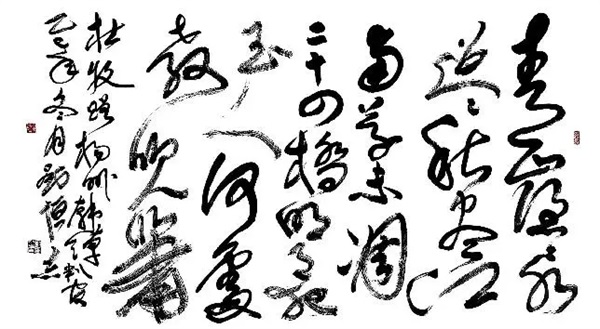 青山隱隱水
迢迢秋盡江
南草未凋
二十四橋明月夜
玉人何處
教吹簫
杜牧 揚州韓綽判官
年冬月